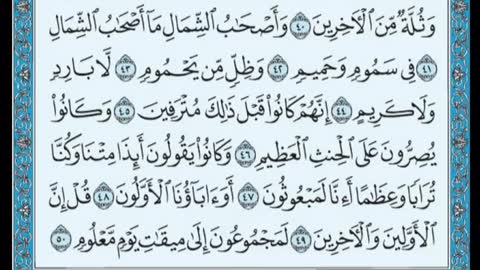 وَثُلَّةٌ مِّنَ ٱلْأَخِرِينَ ٤٠ وَأَصْحَٰبُ ٱلشِّمَالِ مَآ أَصْحَٰبُ ٱلشِّمَالِ
٤١ فِى سَمُومٍ وَحَمِيمٍ ٤٢ وَظِلٍّ مِّن يَحْمُومٍ ٤٣ لَّا بَارِدٍ
وَلَا كَرِيمٍ ٤٤ إِنَّهُمْ كَانُوا۟ قَبْلَ ذَٰلِكَ مُتْرَفِينَ ٤٥ وَكَانُوا۟
يُصِرُّونَ عَلَى ٱلْحِنثِ ٱلْعَظِيمِ ٤٦ وَكَانُوا۟ يَقُولُونَ أَئِذَا مِتْنَا وَكُنَّا
تُرَابًا وَعِظَٰمًا أَءِنَّا لَمَبْعُوثُونَ ٤٧ أَوَءَابَآؤُنَا ٱلْأَوَّلُونَ ٤٨ قُلْ إِنَّ
ٱلْأَوَّلِينَ وَٱلْأَخِرِينَ ٤٩ لَمَجْمُوعُونَ إِلَىٰ مِيقَٰتِ يَوْمٍ مَّعْلُومٍ ٥٠